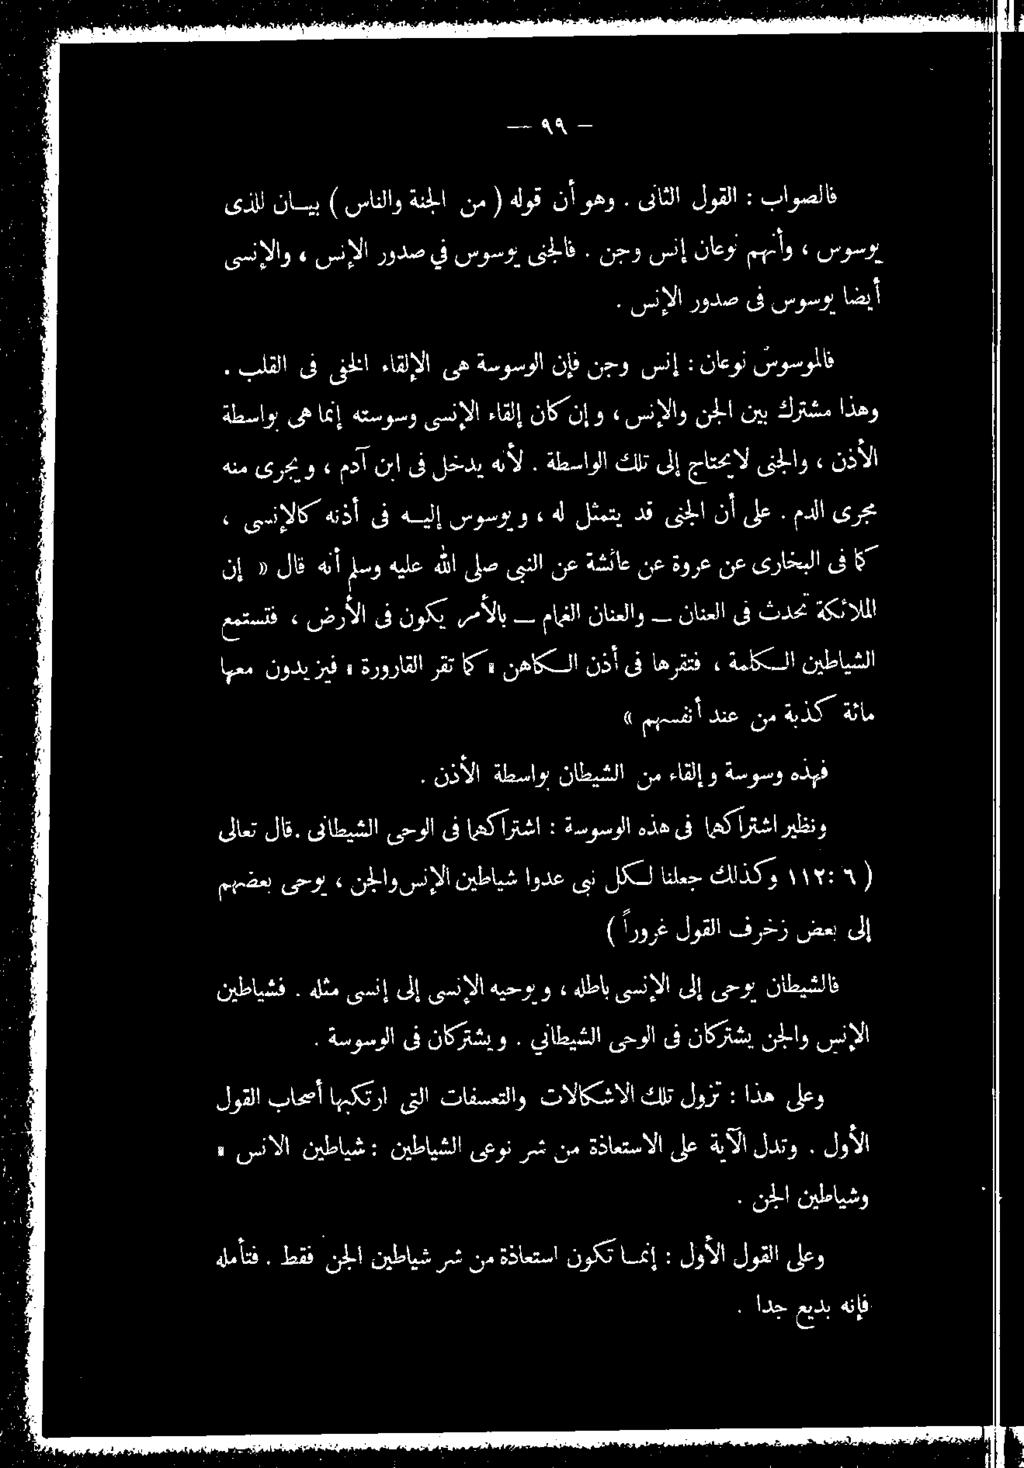 — ٩٩ —
فالصواب : القول الثانى . وهو أن قوله ( من الجنة والناس ) بيـان للذى
يوسوس ، وأنهم نوعان إنس وجن . فالجنى يوسوس في صدور الإنس ، والإنسى
أيضا يوسوس فى صدور الإنس .
فالموسوس نوعان : إنس وجن فإن الوسوسة هى الإلقاء الخفى فى القلب .
وهذا مشترك بين الجن والإنس ، وإن كان إلقاء الإنسى ووسوسته إنما هى بواسطة
الأذن ، والجنى لايحتاج إلى تلك الواسطة . لأنه يدخل فى ابن آدم ، ويجرى منه
مجرى الدم . على أن الجنى قد يتمثل له ، ويوسوس إليـه فى أذنه كالإنسى ،
كما فى البخارى عن عروة عن عائشة عن النبى صلى الله عليه وسلم أنه قال « إن
الملائكة تحدث فى العنان — والعنان الغمام — بالأمر يكون فى الأرض ، فتستمع
الشياطين الـكلمة ، فتقرها فى أذن الـكاهن ، كما تقر القارورة ، فيزيدون معها
مائة كذبة من عند أنفسهم »
فهذه وسوسة وإلقاء من الشيطان بواسطة الأذن .
ونظير اشتراكهما فى هذه الوسوسة : اشتراكهما فى الوحى الشيطانى . قال تعالى
( ٦ : ١١٢ وكذلك جعلنا لـكل نبى عدوا شياطين الإنس والجن ، يوحى بعضهم
إلى بعض زخرف القول غروراً )
فالشيطان يوحى إلى الإنسى باطله ، ويوحيه الإنسى إلى إنسى مثله . فشياطين
الإنس والجن يشتركان فى الوحى الشيطاني . ويشتركان فى الوسوسة .
وعلى هذا : تزول تلك الاشكالات والتعسفات التى ارتكبها أصحاب القول
الأول . وتدل الآية على الاستعاذة من شر نوعى الشياطين : شياطين الانس ،
وشياطين الجن .
وعلى القول الأول : إنمـا تكون استعاذة من شر شياطين الجن فقط . فتأمله
فإنه بديع جدا .